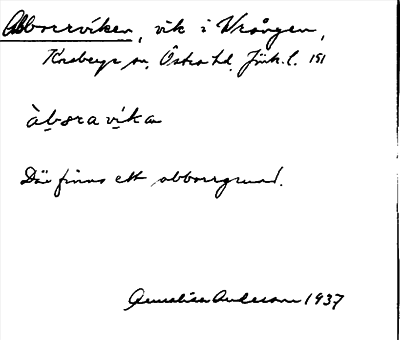 Abborrviken, vik i Vrången,
Knobergs sn, Östra hd, Jönk. l. 151
àbɔravika
Där finns ett abborrgrund.
Annalisa Anderson 1937